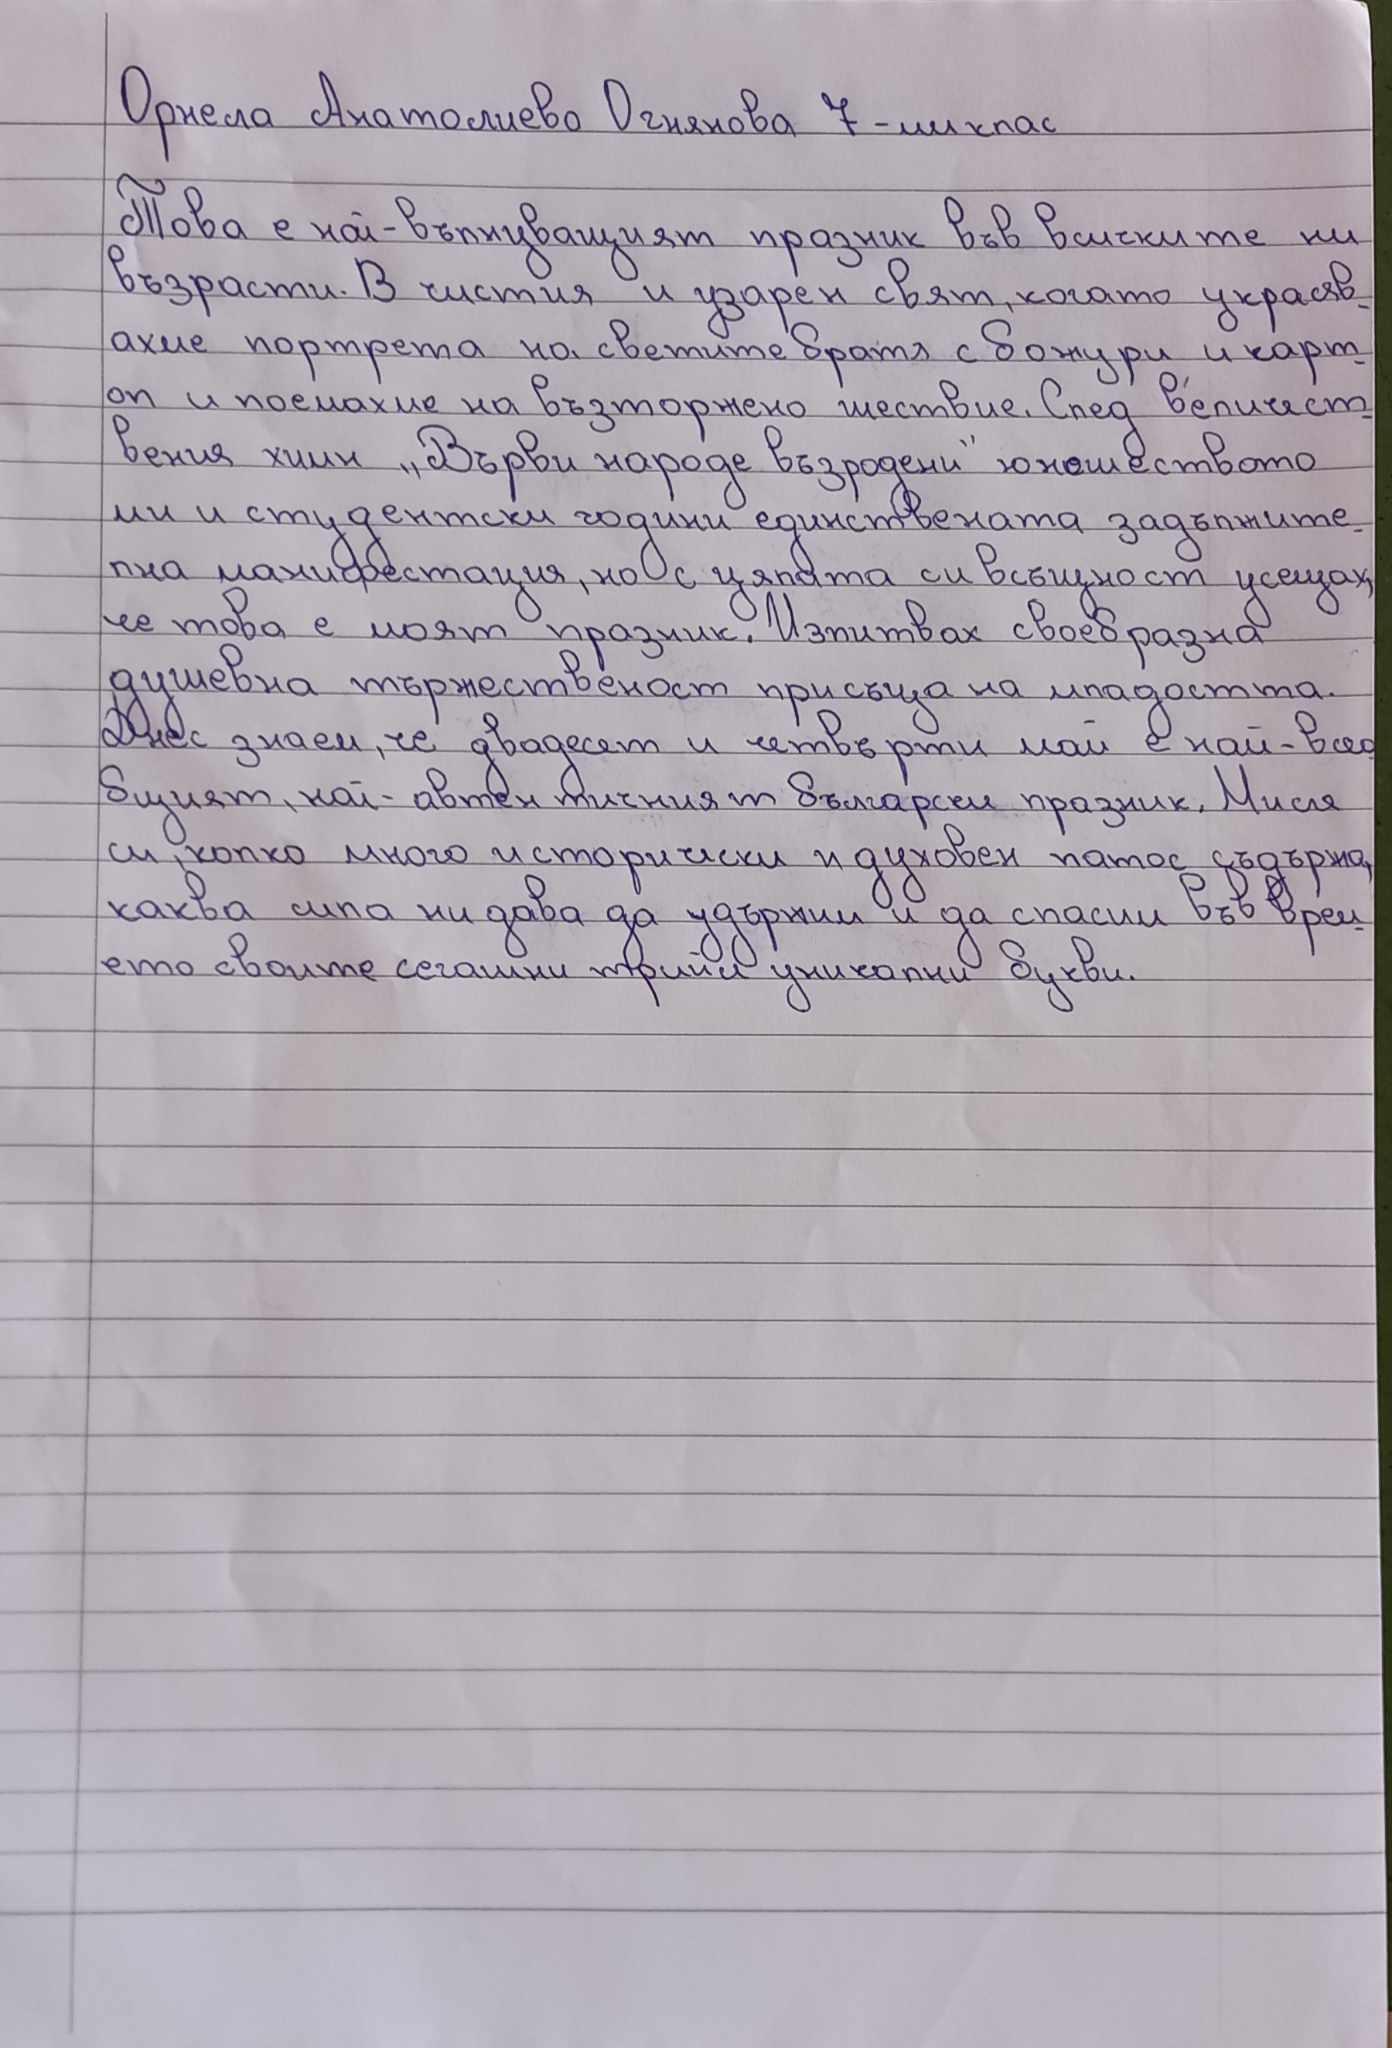 Орнела Анатолиева Огнянова 7-ми клас
Това е най-вълнуващият празник във всичките ни
възрасти. В чистия и узарен свят, когато украсяв-
ахме портрета на светите братя с божури и карт-
оп и поемахме на възторжено шествие. След величест-
вения химн „Върви народе възродени" юношеството
ми и студентски години единствената задължите-
лна манифестация, но с цялата си всъщност усещах,
че това е моят празник. Изпитвах своебразна
душевна тържественост присъща на младостта.
Днес знаем, че двадесет и четвърти май е най-всео
бщият, най-автентичният български празник. Мисля
си, колко много исторически и духовен патос съдържа,
каква сила ни дава да удържим и да спасим във врем-
ето своите сегашни трийи уникални букви.